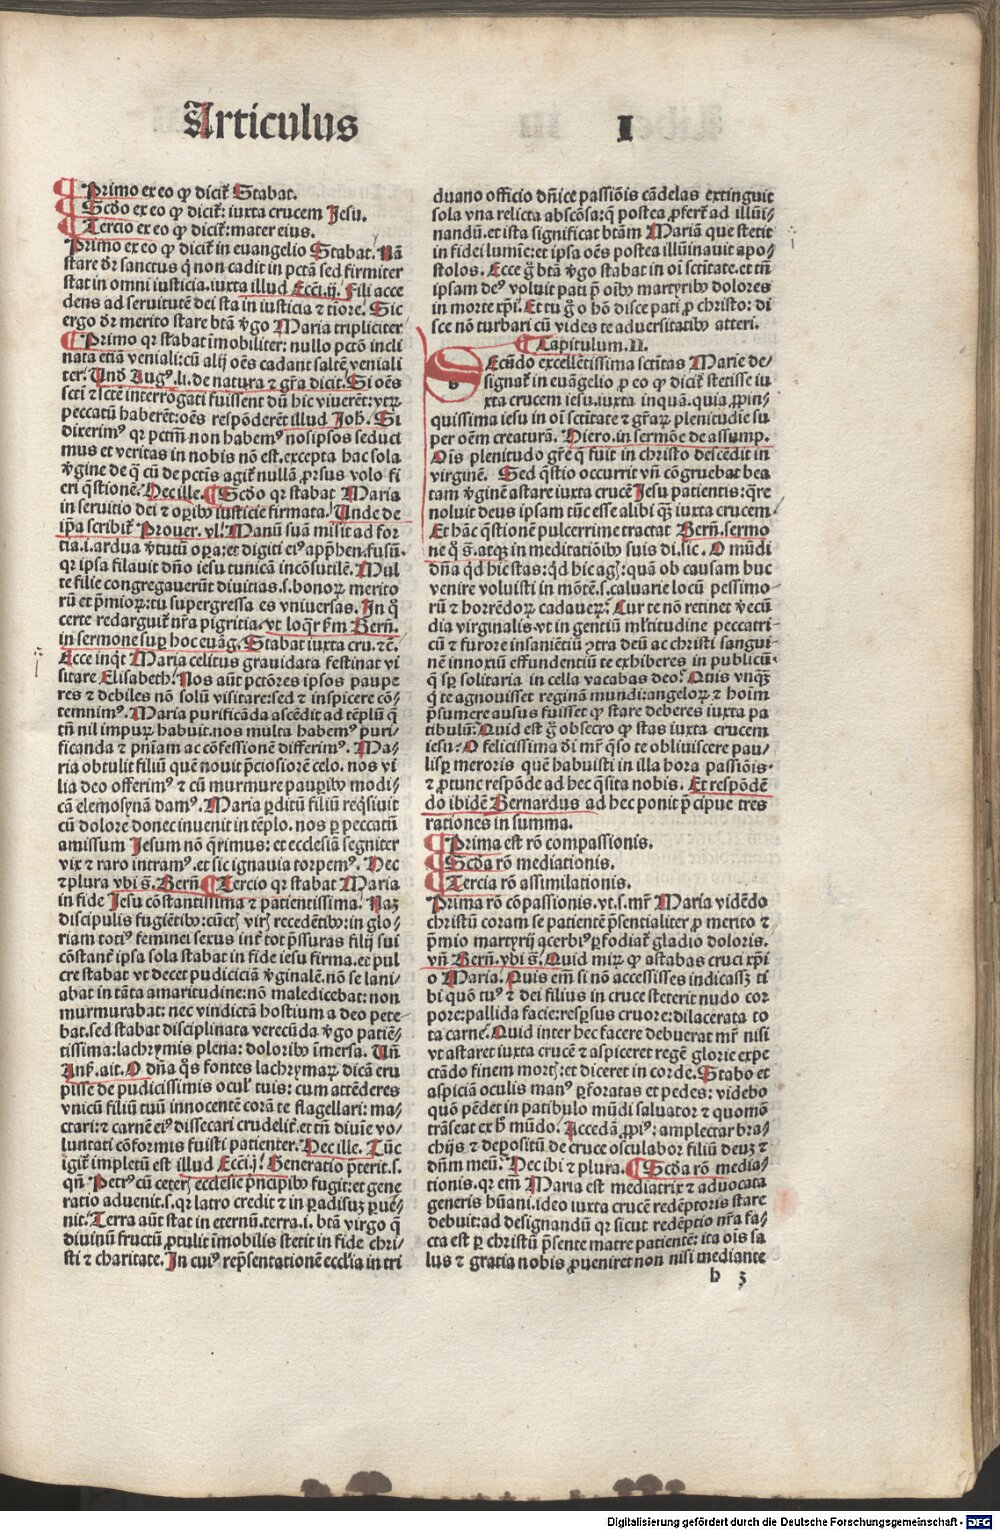 Articulus I
¶ Primo ex eo ꝙ dicit̃ Stabat.
¶ Scďo ex eo ꝙ dicit̃: iuxta crucem Jesu.
¶ Tercio ex eo ꝙ dicit̃: mater eius.
Primo ex eo ꝙ dicit̃ in euangelio Stabat. Nã
stare dr̃ sanctus q̃ non cadit in pctã sed firmiter
stat in omni iusticia. iuxta illud Ecci. ij. Fili acce
dens ad seruitutẽ dei sta in iusticia ⁊ tiore. Sic
ergo dr̃ merito stare btã ṽgo Maria tripliciter
¶ Primo qr stabat imobiliter: nullo pctõ incli
nata etiã veniali: cũ alij oẽs cadant saltẽ veniali
ter. Unď Augꝰ. li. de natura ⁊ gr̃a dicit. Si oẽs
scti ⁊ sctẽ interrogati fuissent dũ hic viuerẽt: vtꝝ
peccatũ haberẽt: oẽs respõderẽt illud Joh̃. Si
dixerimꝰ qr pctm̃ non habemꝰ nosipsos seduci
mus et veritas in nobis nõ est. excepta hac sola
ṽgine de q̃ cũ de pctis agit̃ nullã ꝓrsus volo fi
eri q̃stionẽ. Hec ille. ¶ Scďo qr stabat Maria
in seruitio dei ⁊ oꝑibꝰ iusticie firmata. Unde de
ip̃a scribit̃ Prouer. vl. Manũ suã misit ad for
tia. i. ardua ṽtutũ oꝑa: et digiti eiꝰ app̃hen. fusũ.
qr ipsa filauit dño iesu tunicã incõsutilẽ. Mul
te filie congregauerũt diuitias. s. bonoꝝ merito
rũ et p̃mioꝝ: tu supergressa es vniuersas. In q̊
certe redarguit̃ nr̃a pigritia. vt loqr̃ b̃m Bern̄.
in sermone suꝑ hoc euãg. Stabat iuxta cru. ⁊c̃.
Ecce inq̃t Maria celitus grauidata festinat vi
sitare Elisabeth. Nos aũt pctõres ipsos paupe
res ⁊ debiles nõ solũ visitare: sed ⁊ inspicere cõ
temnimꝰ. Maria purificãda ascẽdit ad tẽplũ q̃
tñ nil impuꝝ habuit. nos multa habemꝰ puri
ficanda ⁊ pniam ac cõfessionẽ differimꝰ. Ma
ria obtulit filiũ quẽ nouit p̃ciosiorẽ celo. nos vi
lia deo offerimꝰ ⁊ cũ murmure pauꝑibꝰ modi
cã elemosynã damꝰ. Maria ꝑditũ filiũ reqsiuit
cũ dolore donec inuenit in tẽplo. nos ꝑ peccatũ
amissum Jesum nõ q̃rimus: et ecclesiã segniter
vix ⁊ raro intramꝰ. et sic ignauia torpemꝰ. Hec
⁊ plura vbi s̃. Bern̄ ¶ Tercio qr stabat Maria
in fide Jesu cõstantissima ⁊ patientissima. Naz
discipulis fugiẽtibꝰ: cũctꝭ virꝭ recedẽtibꝰ: in glo
riam totiꝰ feminei sexus int̃ tot p̃ssuras filij sui
cõstant̃ ipsa sola stabat in fide iesu firma. et pul
cre stabat vt decet pudiciciã ṽginalẽ. nõ se lani
abat in tãta amaritudine: nõ maledicebat: non
murmurabat: nec vindictã hostium a deo pete
bat. sed stabat disciplinata verecũda ṽgo patiẽ
tissima: lachrymis plena: doloribꝰ ĩmersa. Uñ
Ans̃. ait. O dña q̊s fontes lachrymaꝝ dicã eru
pisse de pudicissimis oculꝭ tuis: cum attẽderes
vnicũ filiũ tuũ innocentẽ corã te flagellari: ma
ctari: ⁊ carnẽ eiꝰ dissecari crudelit̃. et tñ diuie vo
luntati cõformis fuisti patienter. Hec ille. Tũc
igit̃ impletũ est illud Ecci. j. Generatio p̃terit. s.
qñ Petrꝰ cũ ceterꝭ ecclesie p̃ncipibꝰ fugit: et gene
ratio aduenit. s. qr latro credit ⁊ in ꝑadisuꝫ ꝑue
nit. Terra aũt stat in eternũ. terra. i. btã virgo q̃
diuinũ fructũ ꝓtulit ĩmobilis stetit in fide chri
sti ⁊ charitate. In cuiꝰ rep̃sentationẽ eccľia in tri
duano officio dñice passiõis cãdelas extinguit
sola vna relicta abscõsa: q̃ postea ꝓfert̃ ad illũi
nandũ. et ista significat btãm Mariã que stetit
in fidei lumĩe: et ipsa oẽs postea illũinauit apo
stolos. Ecce g̃ btã ṽgo stabat in oĩ sctĩtate. et tñ
ipsam deꝰ voluit pati p̃ oĩbꝰ martyribꝰ dolores
in morte xp̃i. Et tu g̃ o hõ disce pati ꝓ christo: di
sce nõ turbari cũ vides te aduersitatibꝰ atteri.
¶ Capitulum. II.
SEcũdo excellẽtissima sctĩtas Marie de
signat̃ in euãgelio ꝓ eo ꝙ dicit̃ stetisse iu
xta crucem iesu. iuxta inquã. quia ꝓpin
quissima iesu in oĩ sctĩtate ⁊ gr̃aꝝ plenitudie su
per oẽm creaturã. Hiero. in sermõe de assump.
Oĩs plenitudo gr̃e q̃ fuit in christo descẽdit in
virginẽ. Sed q̃stio occurrit vñ cõgruebat bea
tam ṽginẽ astare iuxta crucẽ Jesu patientis: q̃re
noluit deus ipsam tũc esse alibi q̃ꝫ iuxta crucem.
Et hãc q̃stionẽ pulcerrime tractat Bern̄. sermo
ne q̊ s̃. atqꝫ in meditatiõibꝰ suis di. sic. O mũdi
dña q̊d hic stas: q̊d hic agꝭ: quã ob causam huc
venire voluisti in mõtẽ. s. caluarie locũ pessimo
rũ ⁊ horrẽdoꝝ cadaueꝝ. Cur te nõ retinet ṽecũ
dia virginalis. vt in gentiũ mľtitudine peccatri
cũ ⁊ furore insaniẽtiũ ↄtra deũ ac christi sangui
nẽ innoxiũ effundentiũ te exhiberes in publicũ.
q̃ sꝑ solitaria in cella vacabas deo. Quis vnq̃ꝫ
q̊ te agnouisset reginã mundi: angeloꝝ ⁊ hoim̃
p̃sumere ausus fuisset ꝙ stare deberes iuxta pa
tibulũ: Quid est g̃ obsecro ꝙ stas iuxta crucem
iesu: O felicissima dei mr̃ q̊so te obliuiscere pau
lisꝑ meroris quẽ habuisti in illa hora passiõis.
⁊ ꝓtunc respõde ad hec q̃sita nobis. Et respõdẽ
do ibidẽ Bernardus ad hec ponit p̃cipue tres
rationes in summa.
¶ Prima est rõ compassionis.
¶ Scďa rõ mediationis.
¶ Tercia rõ assimilationis.
Prima rõ cõpassionis. vt. s. mr̃ Maria vidẽdo
christũ coram se patientẽ p̃sentialiter ꝓ merito ⁊
p̃mio martyrij acerbiꝰ ꝑfodiat̃ gladio doloris.
vñ Bern̄. vbi s̃. Quid miꝝ ꝙ astabas cruci xp̃i
o Maria. Quis em̃ si nõ accessisses indicassꝫ ti
bi quõ tuꝰ ⁊ dei filius in cruce steterit nudo cor
pore: pallida facie: resꝑsus cruore: dilacerata to
ta carne. Quid inter hec facere debuerat mr̃ nisi
vt astaret iuxta crucẽ ⁊ aspiceret regẽ glorie expe
ctãdo finem mortꝭ: et diceret in corde. Stabo et
aspiciã oculis manꝰ ꝑforatas et pedes: videbo
quõ pẽdet in patibulo mũdi saluator ⁊ quomõ
trãseat ex h̃ mũdo. Accedã ꝓpiꝰ: amplectar bra
chijs ⁊ depositũ de cruce osculabor filiũ deuꝫ ⁊
dñm meũ. Hec ibi ⁊ plura. ¶ Scďa rõ media
tionis. qr em̃ Maria est mediatrix ⁊ aduocata
generis hũani. ideo iuxta crucẽ redẽptoris stare
debuit: ad designandũ qr sicut redẽptio nr̃a fa
cta est ꝑ christũ p̃sente matre patientẽ: ita oĩs sa
lus ⁊ gratia nobis ꝓueniret non nisi mediante
h 3
Digitalisierung gefördert durch die Deutsche Forschungsgemeinschaft - DFG